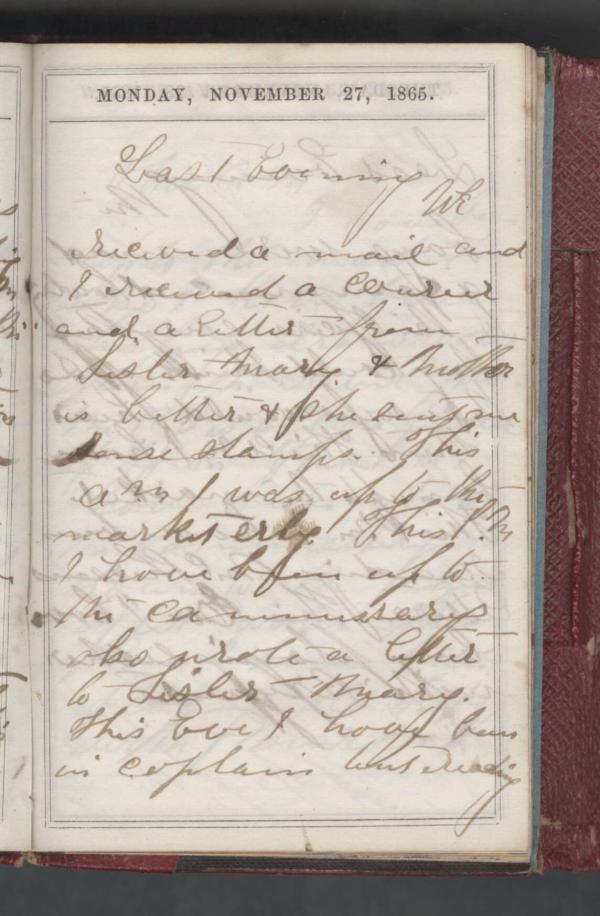 MONDAY, NOVEMBER 27, 1865.
Last Evening
We
received a mail and
I received a courier
and a letter from
Sister Mary & Mother
is better & she sent me
some stamps. This
a m I was up to the
market erly. This P.M
I have been up to
the commissary
also wrote a letter
to Sister Mary.
This Eve I have been
in coptain tent reading